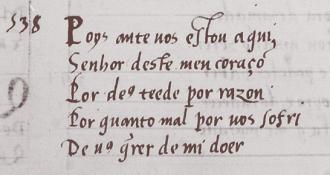 538 Poys ante uos estou aqui,
Senhor deste meu coraço
Por deº teede por razon
Por quanto mal por uos sofri
De uº q̃rer de mi doer